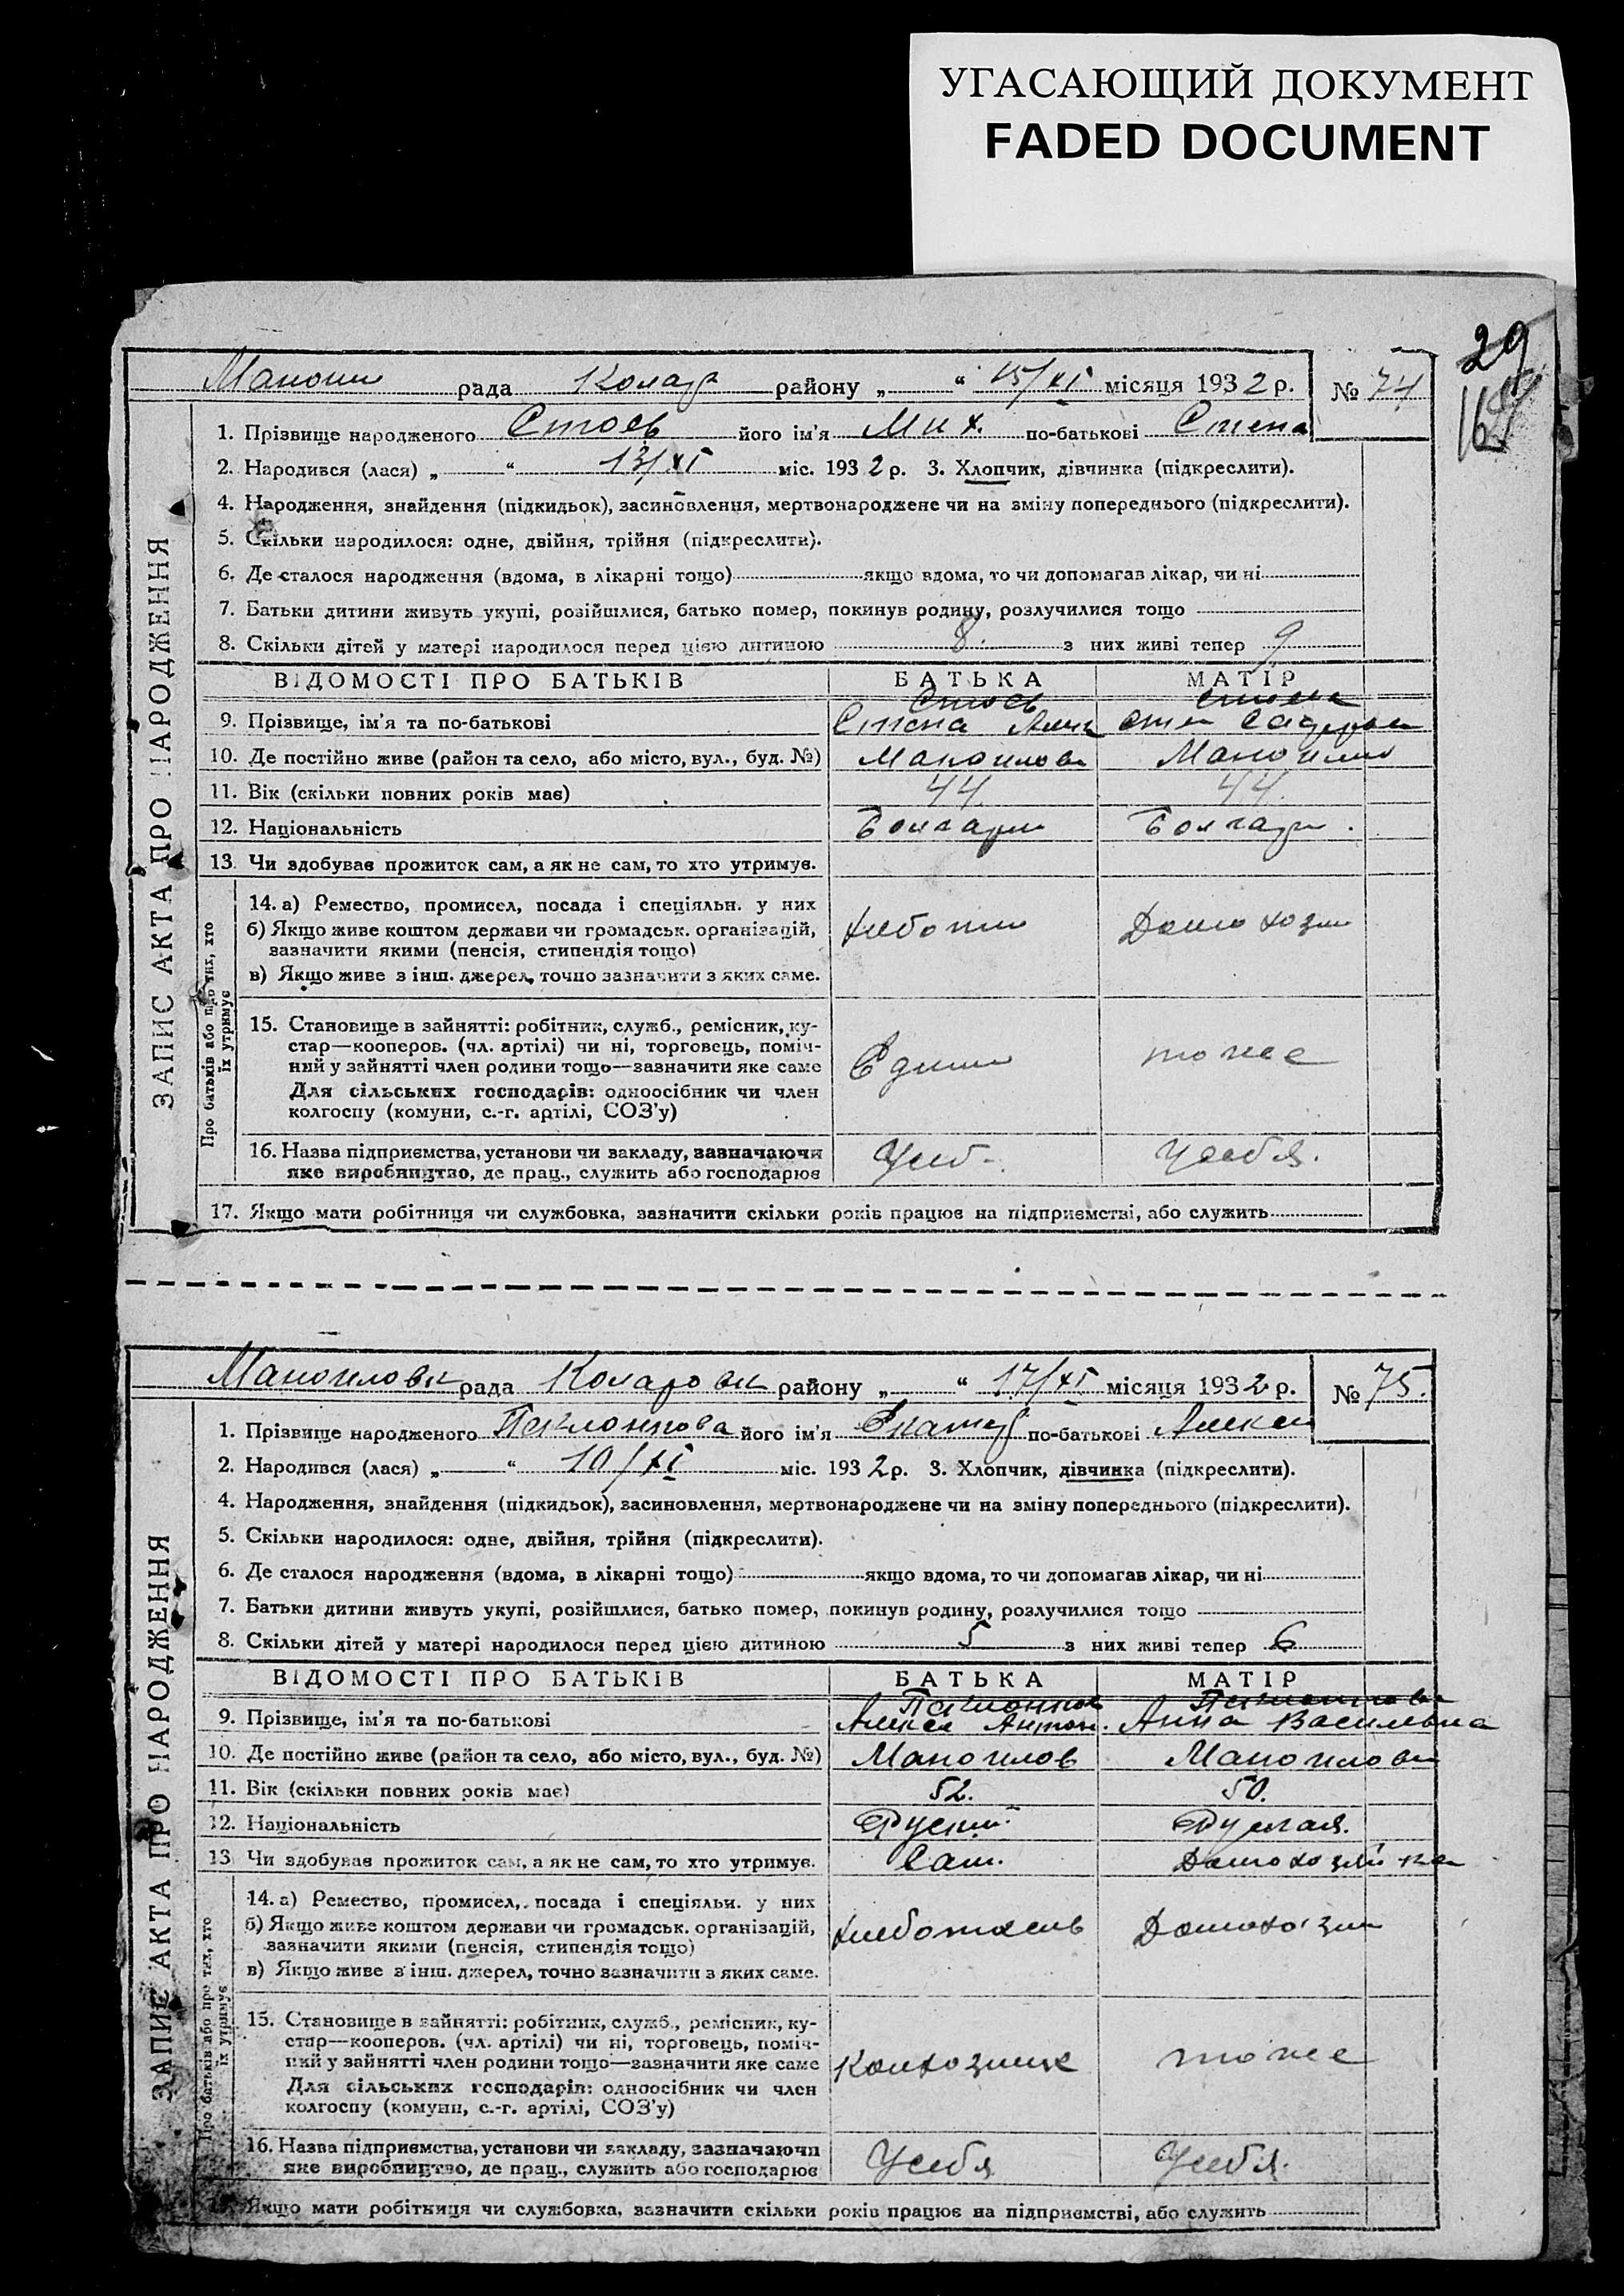 УГАСАЮЩИЙ ДОКУМЕНТ
FADED DOCUMENT
29
164
рада Колар району „ “ 15/XI місяця 1932 р. № 74
1. Прізвище народженого Стоєв його ім'я Мих. по-батькові Степа
2. Народився (лася) „ “ 13/XI міс. 1932 р. 3. Хлопчик, дівчинка (підкреслити).
4. Народження, знайдення (підкидьок), засиновлення, мертвонароджене чи на зміну попереднього (підкреслити).
5. Скільки народилося: одне, двійня, трійня (підкреслити).
6. Де сталося народження (вдома, в лікарні тощо) якщо вдома, то чи допомагав лікар, чи ні
7. Батьки дитини живуть укупі, розійшлися, батько помер, покинув родину, розлучилися тощо
8. Скільки дітей у матері народилося перед цією дитиною 8. з них живі тепер 9
ВІДОМОСТІ ПРО БАТЬКІВ БАТЬКА МАТІР
Стоєв
9. Прізвище, ім'я та по-батькові Степа
10. Де постійно живе (район та село, або місто, вул., буд. №) Маноилов
11. Вік (скільки повних років має) 44. 44.
12. Національність Болгари Болгар.
13. Чи здобував прожиток сам, а як не сам, то хто утримує.
14. а) Ремество, промисел, посада і спеціяльн. у них
б) Якщо живе коштом держави чи громадськ. організацій, Домохозяи
зазначити якими (пенсія, стипендія тощо)
в) Якщо живе з інш. джерел, точно зазначити з яких саме.
15. Становище в зайнятті: робітник, служб., ремісник, ку-
стар—кооперов. (чл. артілі) чи ні, торговець, поміч- тоже
ний у зайнятті член родини тощо—зазначити яке саме
Для сільських господарів: одноосібник чи член
колгоспу (комуни, с.-г. артілі, СОЗ'у)
16. Назва підприємства, установи чи закладу, зазначаючи Усеб- Усебя.
яке виробництво, де прац., служить або господарює
17. Якщо мати робітниця чи службовка, зазначити скільки років працює на підприємстві, або служить
ЗАПИС АКТА ПРО НАРОДЖЕННЯ
Про батьків або про тих, хто
їх утримує
Маноиловк рада Коларовк району „ “ 17/XI місяця 1932 р. № 75.
1. Прізвище народженого його ім'я Екатер по-батькові Алексе
2. Народився (лася) „ “ 10/XI міс. 1932 р. 3. Хлопчик, дівчинка (підкреслити).
4. Народження, знайдення (підкидьок), засиновлення, мертвонароджене чи на зміну попереднього (підкреслити).
5. Скільки народилося: одне, двійня, трійня (підкреслити).
6. Де сталося народження (вдома, в лікарні тощо) якщо вдома, то чи допомагав лікар, чи ні
7. Батьки дитини живуть укупі, розійшлися, батько помер, покинув родину, розлучилися тощо
8. Скільки дітей у матері народилося перед цією дитиною 5 з них живі тепер 6
ВІДОМОСТІ ПРО БАТЬКІВ БАТЬКА МАТІР
9. Прізвище, ім'я та по-батькові Алексе Антон. Анна Василевна
10. Де постійно живе (район та село, або місто, вул., буд. №) Маноилов Маноиловк
11. Вік (скільки повних років має) 52. 50.
12. Національність Руский. Руская.
13. Чи здобував прожиток сам, а як не сам, то хто утримує. Сам. Домохозяйка
14. а) Ремество, промисел, посада і спеціяльн. у них
б) Якщо живе коштом держави чи громадськ. організацій, Домохозяи
зазначити якими (пенсія, стипендія тощо)
в) Якщо живе з інш. джерел, точно зазначити з яких саме.
15. Становище в зайнятті: робітник, служб., ремісник, ку-
стар—кооперов. (чл. артілі) чи ні, торговець, поміч-
ний у зайнятті член родини тощо—зазначити яке саме Колхозник тоже
Для сільських господарів: одноосібник чи член
колгоспу (комуни, с.-г. артілі, СОЗ'у)
16. Назва підприємства, установи чи закладу, зазначаючи Усебя Усебя.
яке виробництво, де прац., служить або господарює
Якщо мати робітниця чи службовка, зазначити скільки років працює на підприємстві, або служить
ЗАПИС АКТА ПРО НАРОДЖЕННЯ
Про батьків або про тих, хто
їх утримує